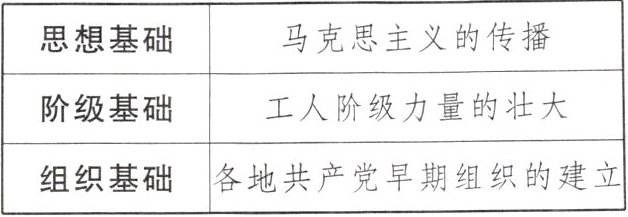 思想基础 马克思主义的传播
阶级基础 工人阶级力量的壮大
组织基础 各地共产党早期组织的建立